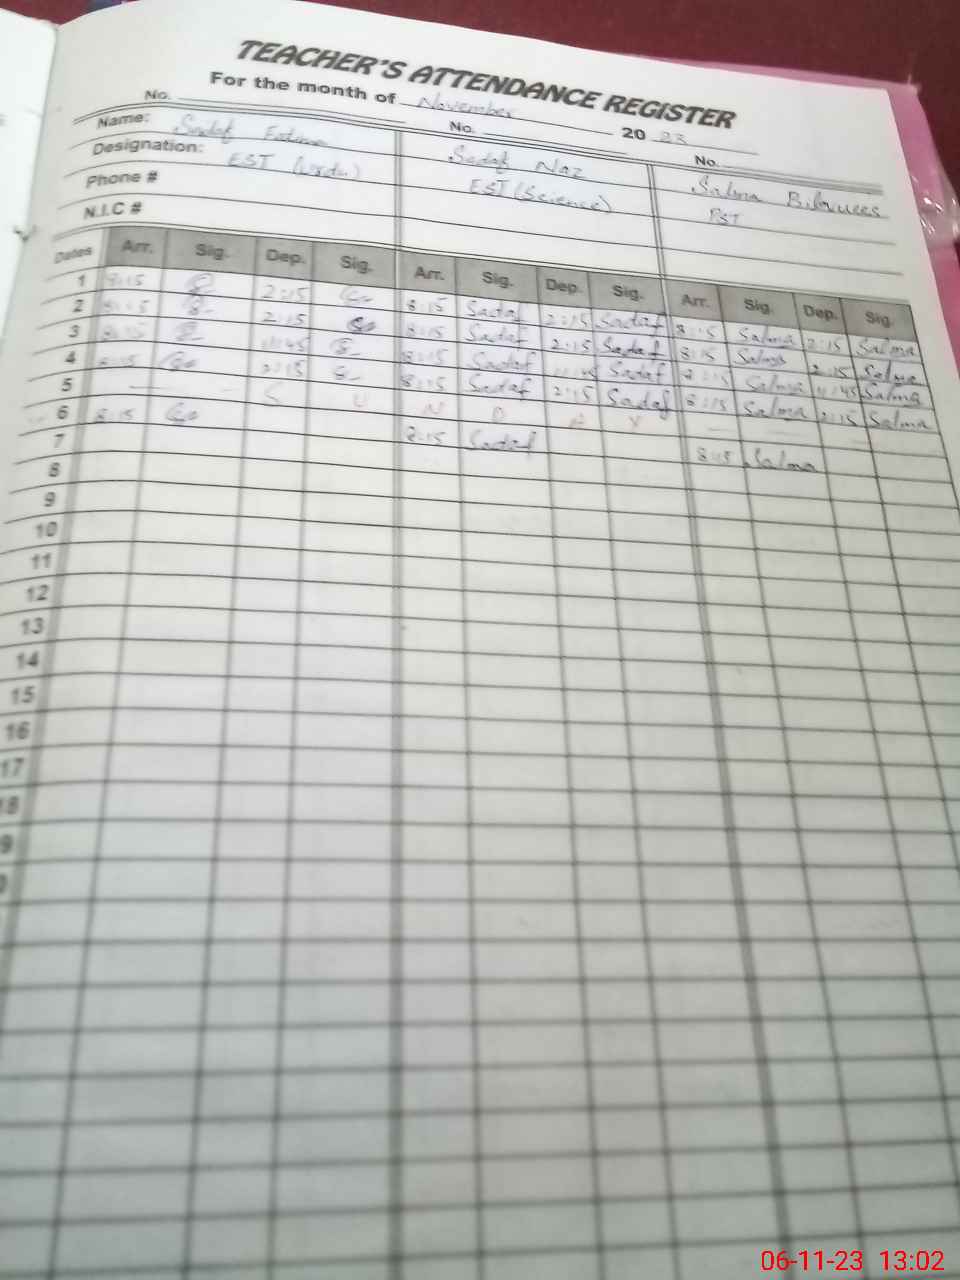 TEACHER'S ATTENDANCE REGISTER
For the month of November 2023
No. No. No.
Name: Sadaf Fatima Sadaf Naz Salma
Designation: EST (Urdu) EST (Science) PST
Phone #
N.I.C #
Dates Arr. Sig. Dep. Sig. Arr. Sig. Dep. Sig. Arr. Sig. Dep. Sig.
1 8:15 2:15 8:15 Sadaf 2:15 Sadaf 8:15 Salma 2:15 Salma
2 8:15 2:15 8:15 Sadaf 2:15 Sadaf 8:15 Salma 2:15 Salma
3 8:15 11:45 8:15 Sadaf 11:45 Sadaf 8:15 Salma 11:45 Salma
4 8:15 2:15 8:15 Sadaf 2:15 Sadaf 8:15 Salma 2:15 Salma
5 S U N D A Y
6 8:15 8:15 Sadaf 8:15 Salma
7
8
9
10
11
12
13
14
15
16
17
18
9
06-11-23 13:02